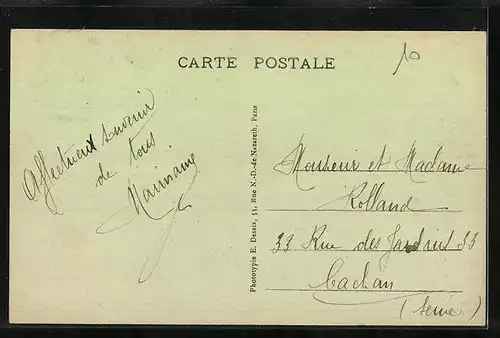 CARTE POSTALE
10
Affectueux souvenir
de tous
Phototypie E. Desaix, 51, Rue N.-D.-de Nazareth, Paris
Monsieur et Madame
Rolland
33 Rue des Jardins 33
Cachan
(Seine)